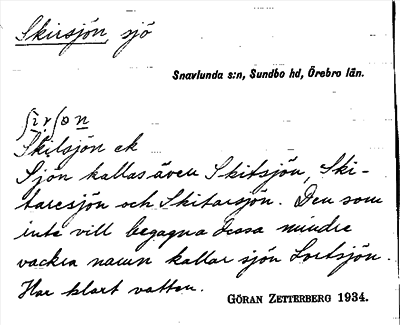 Skirsjön, sjö
Snavlunda s:n, Sundbo hd, Örebro län.
Skilsjön ek
Sjön kallas även Skitsjön, Ski-
taresjön och Skitarsjön. Den som
inte vill begagna dessa mindre
vackra namn kallar sjön Lortsjön.
Har klart vatten.
GÖRAN ZETTERBERG 1934.